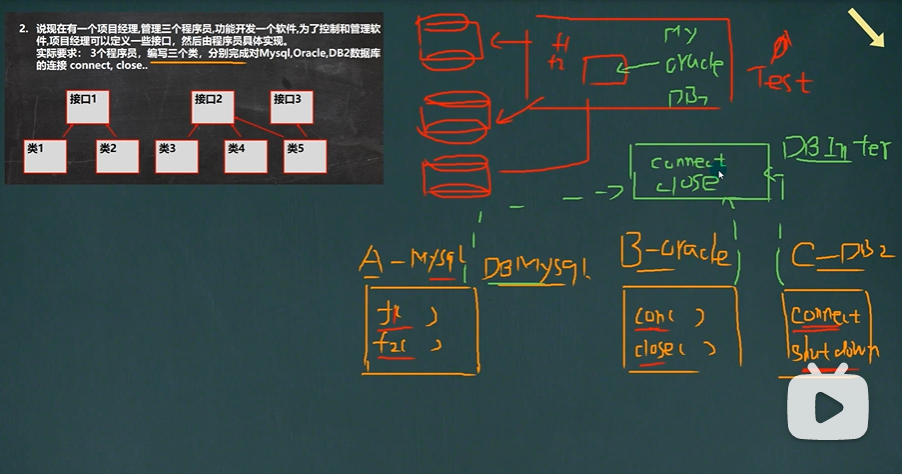 2. 说现在有一个项目经理,管理三个程序员,功能开发一个软件,为了控制和管理软
件,项目经理可以定义一些接口，然后由程序员具体实现。
实际要求： 3个程序员，编写三个类，分别完成对Mysql,Oracle,DB2数据库
的连接 connect, close..
接口1
接口2
接口3
类1
类2
类3
类4
类5
My
oracle
DB2
f1
f2
Test
connect
close
DBInter
A-Mysql
DBMysql
B-oracle
C-DB2
f1( )
f2( )
con( )
close( )
connect
shutdown